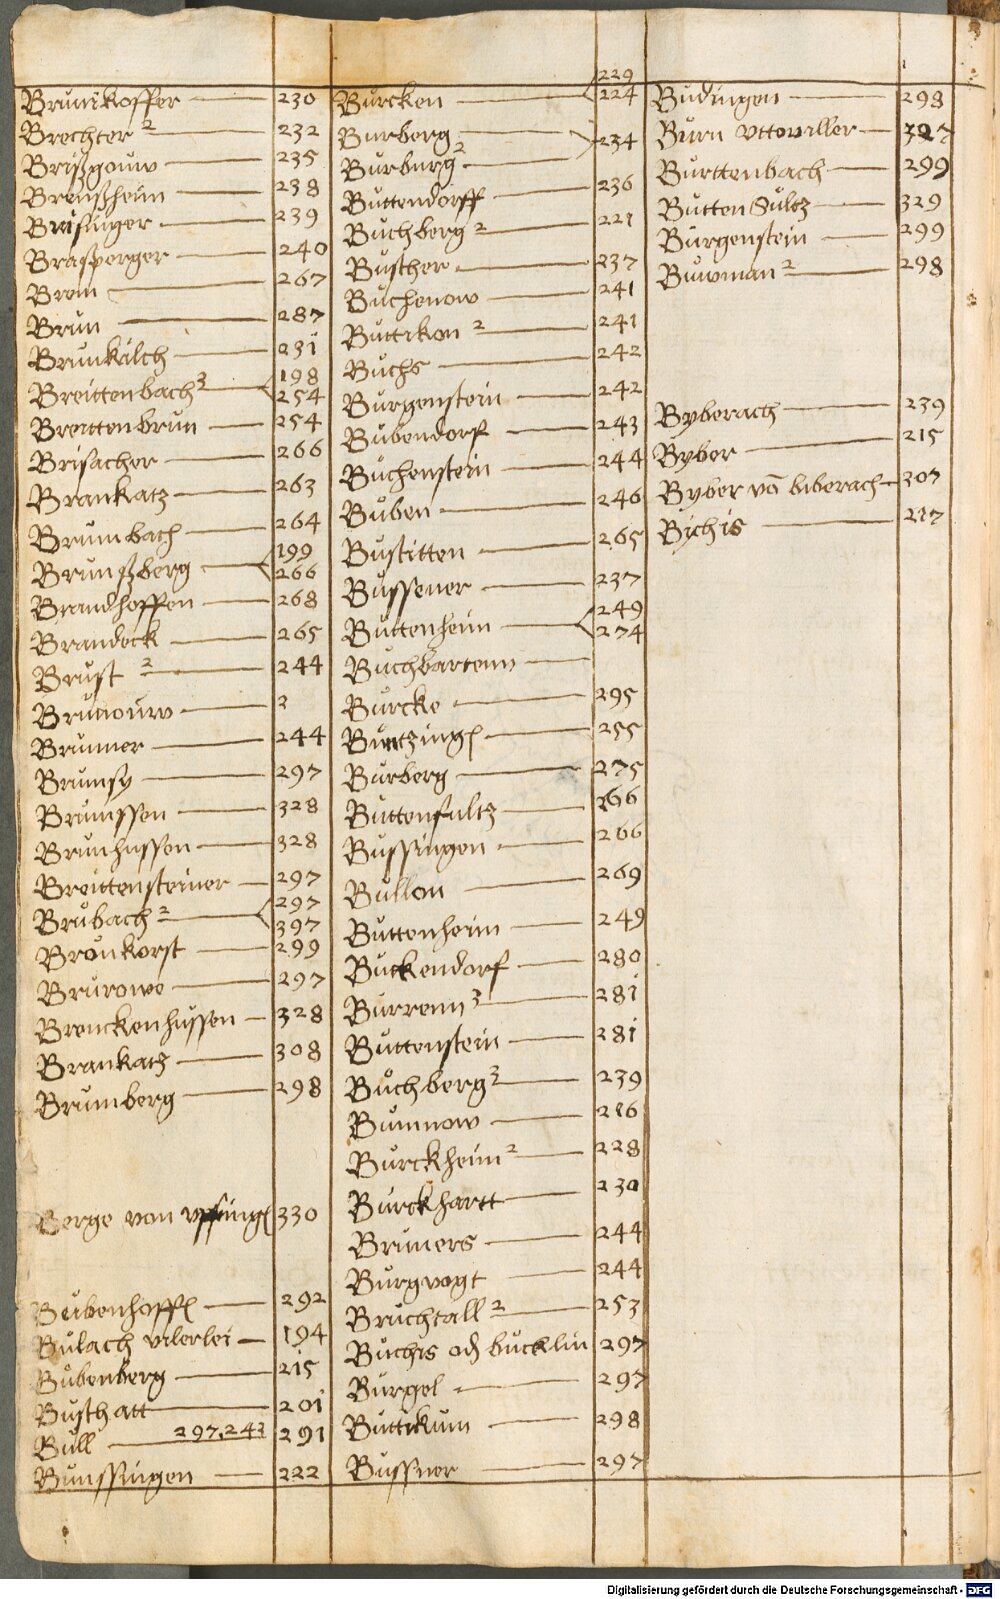 Brunikoffer 230
Brechter 2 232
Brißgouw 235
Brenßheim 238
Brisinger 239
Brasperger 240
Brem 267
Brun 287
Brunkilch 231
Breittenbach 3 198 254
Breittenbrun 254
Brisacher 266
Brankatz 263
Brumbach 264
Brunßberg 199 266
Brandhoffen 268
Brandeck 265
Brust 2 244
Brunouw 2
Brunner 244
Brumsy 297
Brumssen 328
Brunhussen 328
Breittensteiner 297
Brůbach 2 297 397
Bronkorst 299
Brurowe 297
Brenckenhussen 328
Brankatz 308
Brumberg 298
Berge von 330
Bubenhoff 292
Bulach vilerlei 194
Bůbenberg 215
Busthatt 201
Bull 297, 243 291
Bunssingen 222
Burcken 229 224
Burberg 234
Burburg 2
Buttendorff 236
Buchberg 2 221
Busther 237
Buchenow 241
Buttikon 2 241
Buchs 242
Burgenstein 242
Bubendorf 243
Buchenstein 244
Buben 246
Bustitten 265
Bussener 237
Buttenheim 249 274
Buchbartenn
Burcke 295
Buntzing 255
Burberg 275
Buttensultz 266
Bussingen 266
Bullon 269
Buttenheim 249
Buckendorf 280
Burrenn 3 281
Buttenstein 281
Bůchberg 3 239
Bumnow 216
Burckheim 2 228
Burckhartt 230
Bruners 244
Burgvogt 244
Bruchtall 2 253
Buchis od bucklin 297
Burgel 297
Buttikum 298
Bussner 297
Budingen 298
Burn vttowiller 307
Burttenbach 299
Butten Sultz 329
Burgenstein 299
Buwman 2 298
Byberach 239
Byber 215
Byber vō biberach 307
Bichis 217
Digitalisierung gefördert durch die Deutsche Forschungsgemeinschaft - DFG